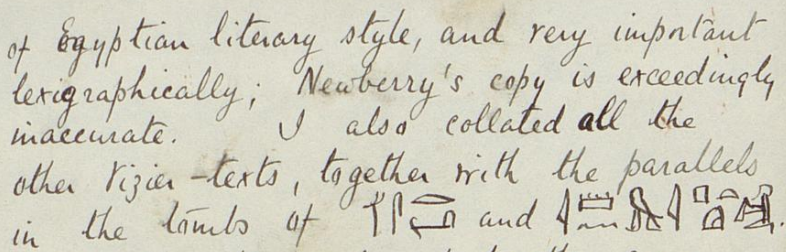 of Egyptian literary style, and very important
lexigraphically; Newberry's copy is exceedingly
inaccurate. I also collated all the
other Vizier-texts, together with the parallels
in the tombs of and